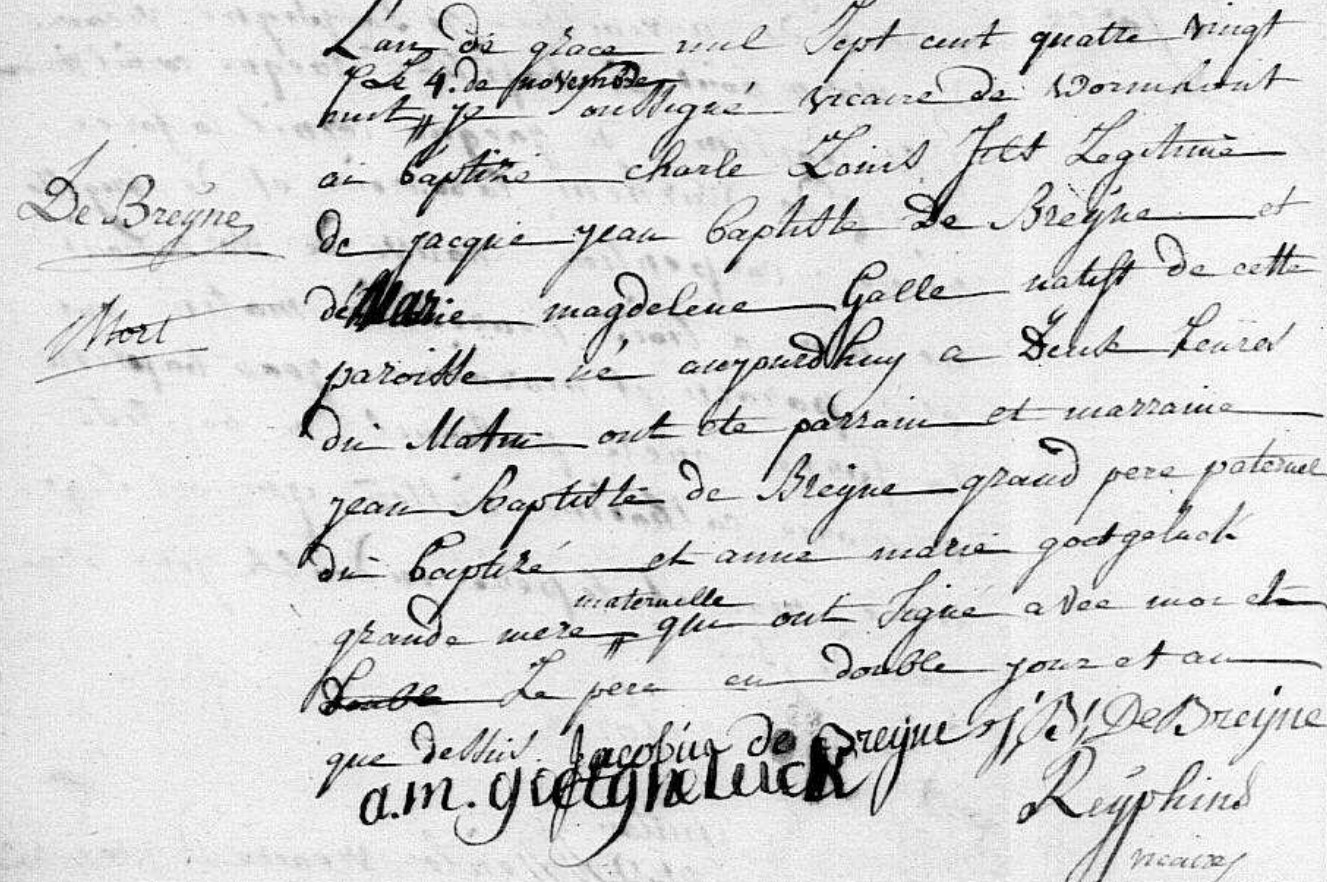 L'an de grace mil sept cent quatre vingt
le 4. de novembre
huit je soussigné vicaire de wormhout
ai baptizé charle Louis fils Legitime
De Breyne
de jacque jean baptiste De Breÿne et
de Marie magdelene Galle natifs de cette
Mort
paroisse né aujourdhuy a Deux heures
du Matin ont ete parrain et marraine
jean Baptiste de Breÿne grand pere paternel
du baptizé et anne marie goetgeluck
maternelle
grande mere qui ont signé avec moi et
Le pere en double jour et an
que dessus. Jacobus de Breyne J: B: De Breyne
a.m. goetgheluck
Reyphins
vicaire